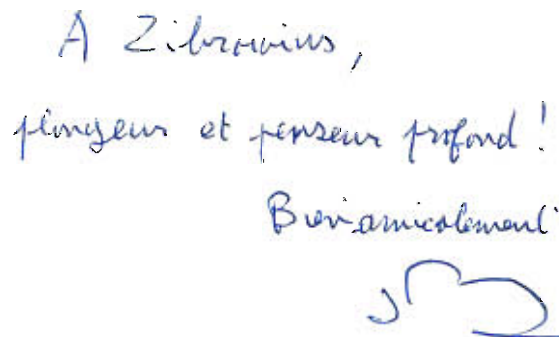 A Zibrowius,
plongeur et penseur profond !
Bien amicalement